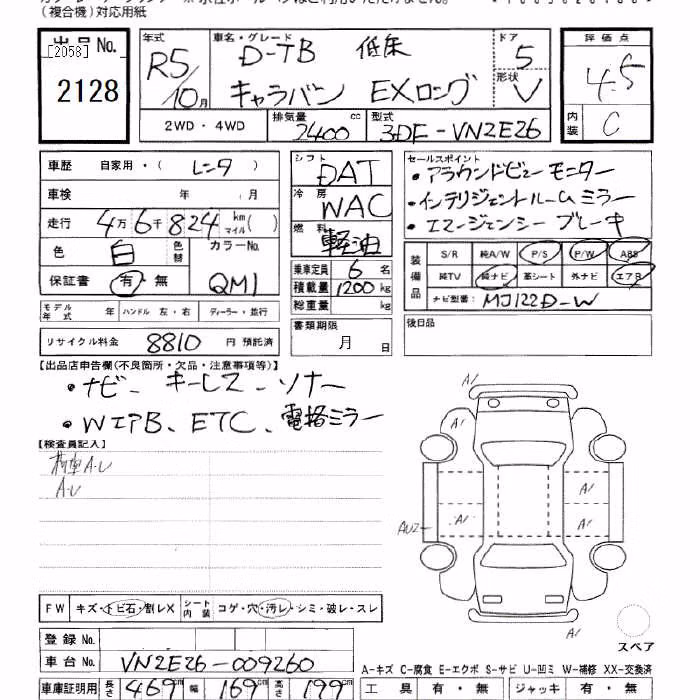 (複合機)対応用紙
出品No.
[2058]
2128
年式
R5/10月
車名・グレード
D-TB 低床
キャラバン EXロング
ドア
5
形状
V
評価点
4.5
内装
C
2WD・4WD
排気量
2400 cc
型式
3DF-VN2E26
車歴 自家用・( レンタ )
車検 年 月
走行 4万6千824 km マイル( )
色 白 色替
カラーNo.
QM1
保証書 有・無
シフト
DAT
冷房
WAC
燃料
軽油
乗車定員 6 名
積載量 1200 kg
総重量 kg
書類期限
月 日
セールスポイント
・アラウンドビューモニター
・インテリジェントルームミラー
・エマージェンシーブレーキ
装備品
S/R 純A/W P/S P/W ABS
純TV 純ナビ 革シート 外ナビ エアB
ナビ型番: MJ122D-W
後日品
モデル年式 年 ハンドル 左・右 ディーラー・並行
リサイクル料金 8810 円 預託済
【出品店申告欄(不良箇所・欠品・注意事項等)】
・ナビ-キーレス-ソナー
・WエアB、ETC、電格ミラー
【検査員記入】
A・U
A・U
A1
A1
A1
A1
AU2
A1
A1
スペア
FW キズ・トビ石・割レX
シート内装 コゲ・穴・汚レ・シミ・破レ・スレ
登録No.
車台No. VN2E26-009260
車庫証明用 長さ 469 幅 169 高さ 199 cm
A-キズ C-腐食 E-エクボ S-サビ U-凹ミ W-補修 XX-交換済
工具 有・無 ジャッキ 有・無